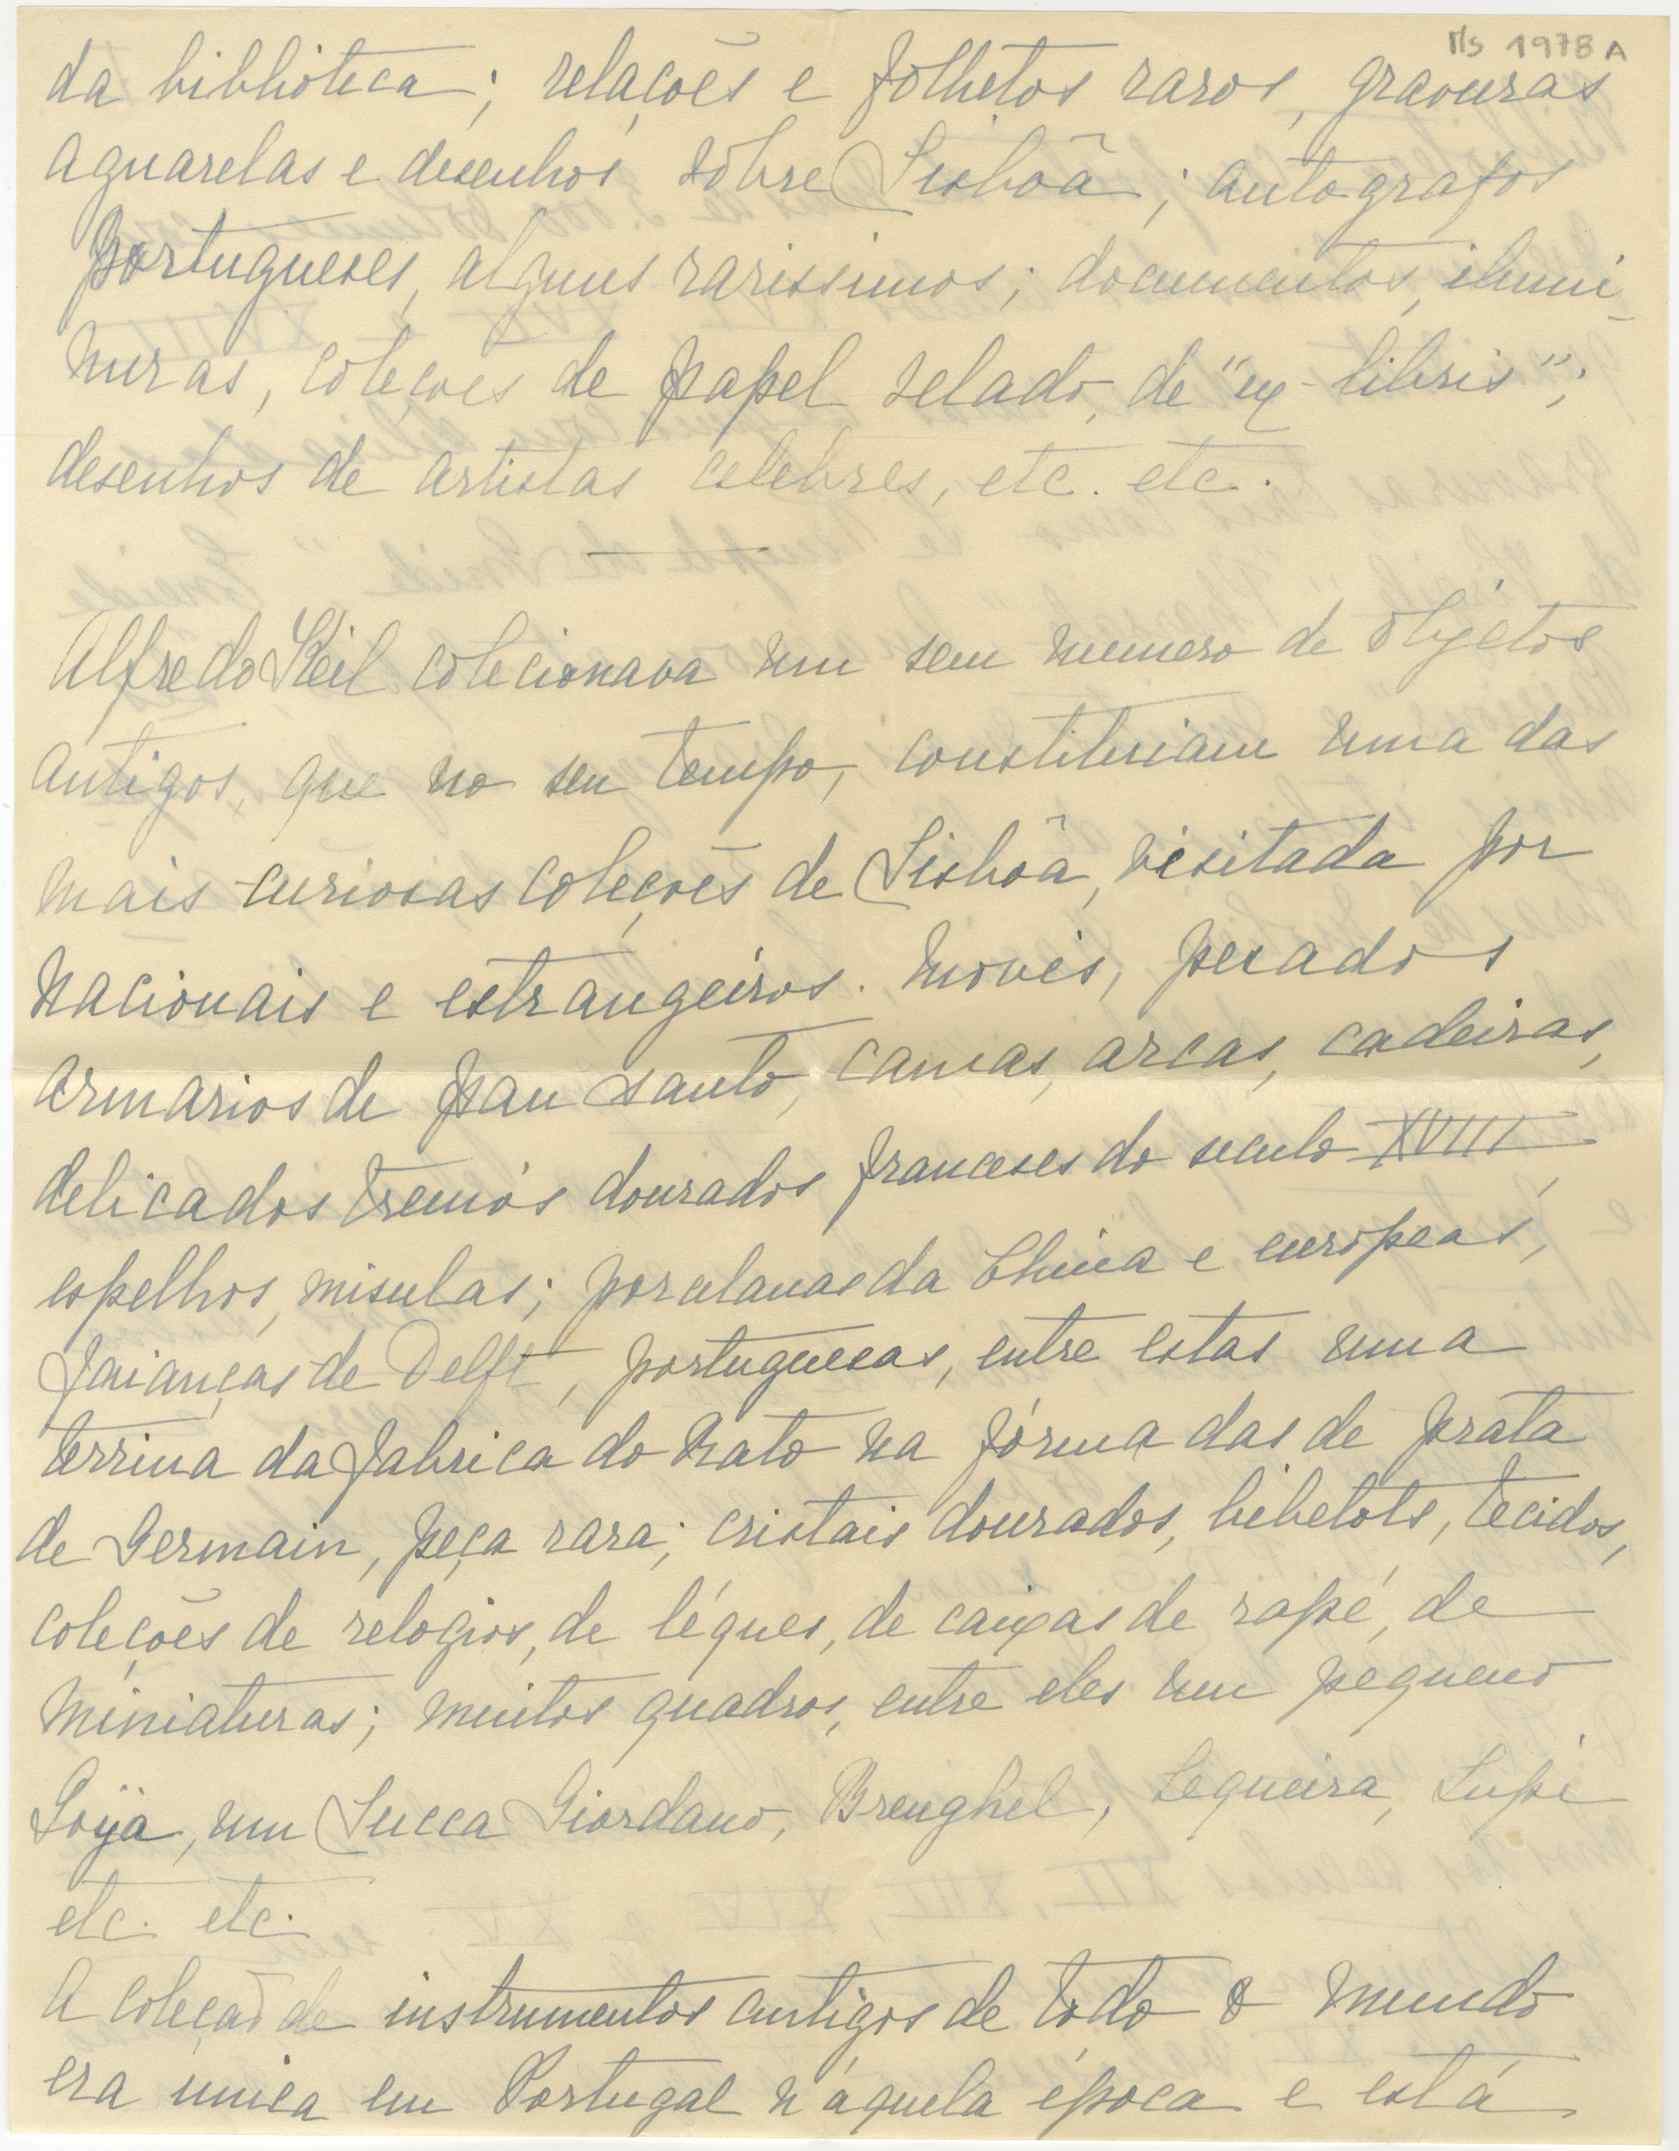 Ms 1978 A
da biblióteca; relações e folhetos raros, gravuras
aguarelas e desenhos sôbre Lisbôa; autografos
portugueses, alguns rarissimos; documentos, ilumi-
nuras, coleções de papel selado, de "ex-libris";
desenhos de artistas celébres, etc. etc.
Alfredo Keil colecionava um sem numero de objétos
antigos, que no seu tempo, constituiam uma das
mais curiosas coleções de Lisbôa, visitada por
nacionais e estrangeiros. Moveis, pesados
armarios de pau santo, camas, arcas, cadeiras,
delicados tremós dourados franceses do seculo XVIII,
espelhos, misulas; porcelanas da China e europeas,
faianças de Delft, portuguesas, entre estas uma
terrina da fabrica do Rato na fórma das de prata
de Germain, peça rara; cristais dourados, bibelots, tecidos,
coleções de relogios, de léques, de caixas de rapé, de
miniaturas; muitos quadros, entre eles um pequeno
Goya, um Lucca Giordano, Breughel, Sequeira, Lupi
etc. etc.
A coleção de instrumentos antigos de todo o mundo
era unica em Portugal n'aquela época e está